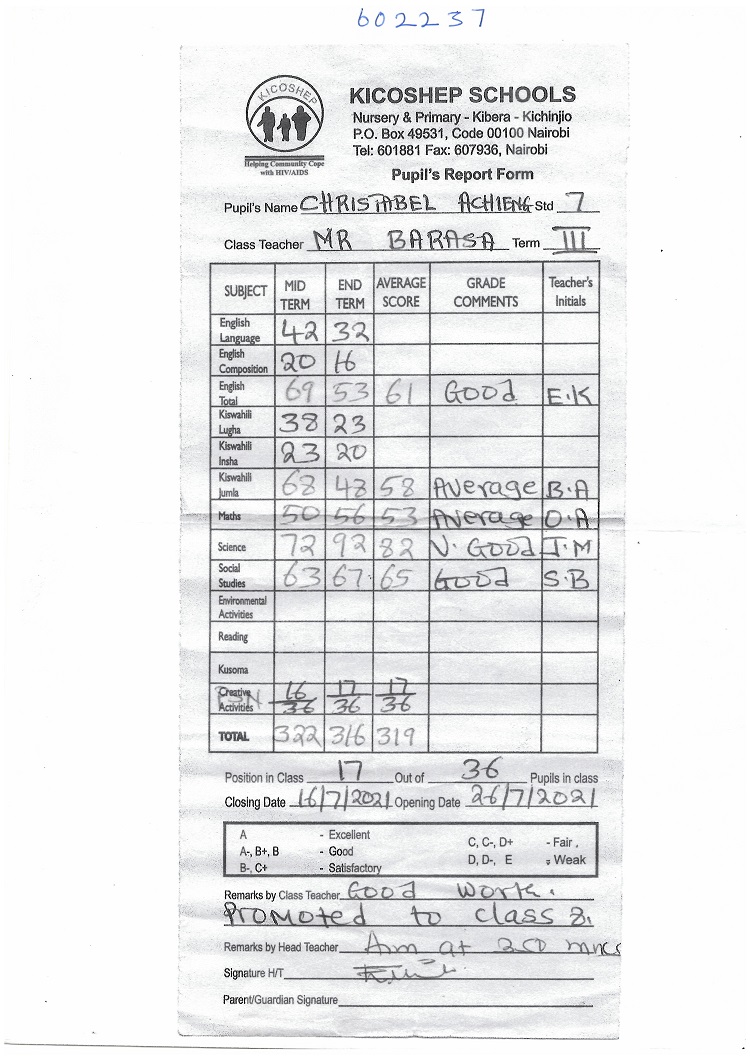 602237
KICOSHEP
Helping Community Cope
with HIV/AIDS
KICOSHEP SCHOOLS
Nursery & Primary - Kibera - Kichinjio
P.O. Box 49531, Code 00100 Nairobi
Tel: 601881 Fax: 607936, Nairobi
Pupil's Report Form
Pupil's Name CHRISTABEL ACHIENG Std 7
Class Teacher MR BARASA Term III
SUBJECT MID TERM END TERM AVERAGE SCORE GRADE COMMENTS Teacher's Initials
English Language 42 32
English Composition 20 16
English Total 69 53 61 Good E.K
Kiswahili Lugha 38 23
Kiswahili Insha 23 20
Kiswahili Jumla 68 48 58 Average B.A
Maths 50 56 53 Average O.A
Science 72 92 82 V. Good J.M
Social Studies 63 67 65 Good S.B
Environmental Activities
Reading
Kusoma
Creative Activities PSN 16/36 17/36 17/36
TOTAL 322 316 319
Position in Class 17 Out of 36 Pupils in class
Closing Date 16/7/2021 Opening Date 26/7/2021
A - Excellent
A-, B+, B - Good
B-, C+ - Satisfactory
C, C-, D+ - Fair
D, D-, E - Weak
Remarks by Class Teacher Good work.
Promoted to class 8.
Remarks by Head Teacher Aim at 350 mks
Signature H/T
Parent/Guardian Signature